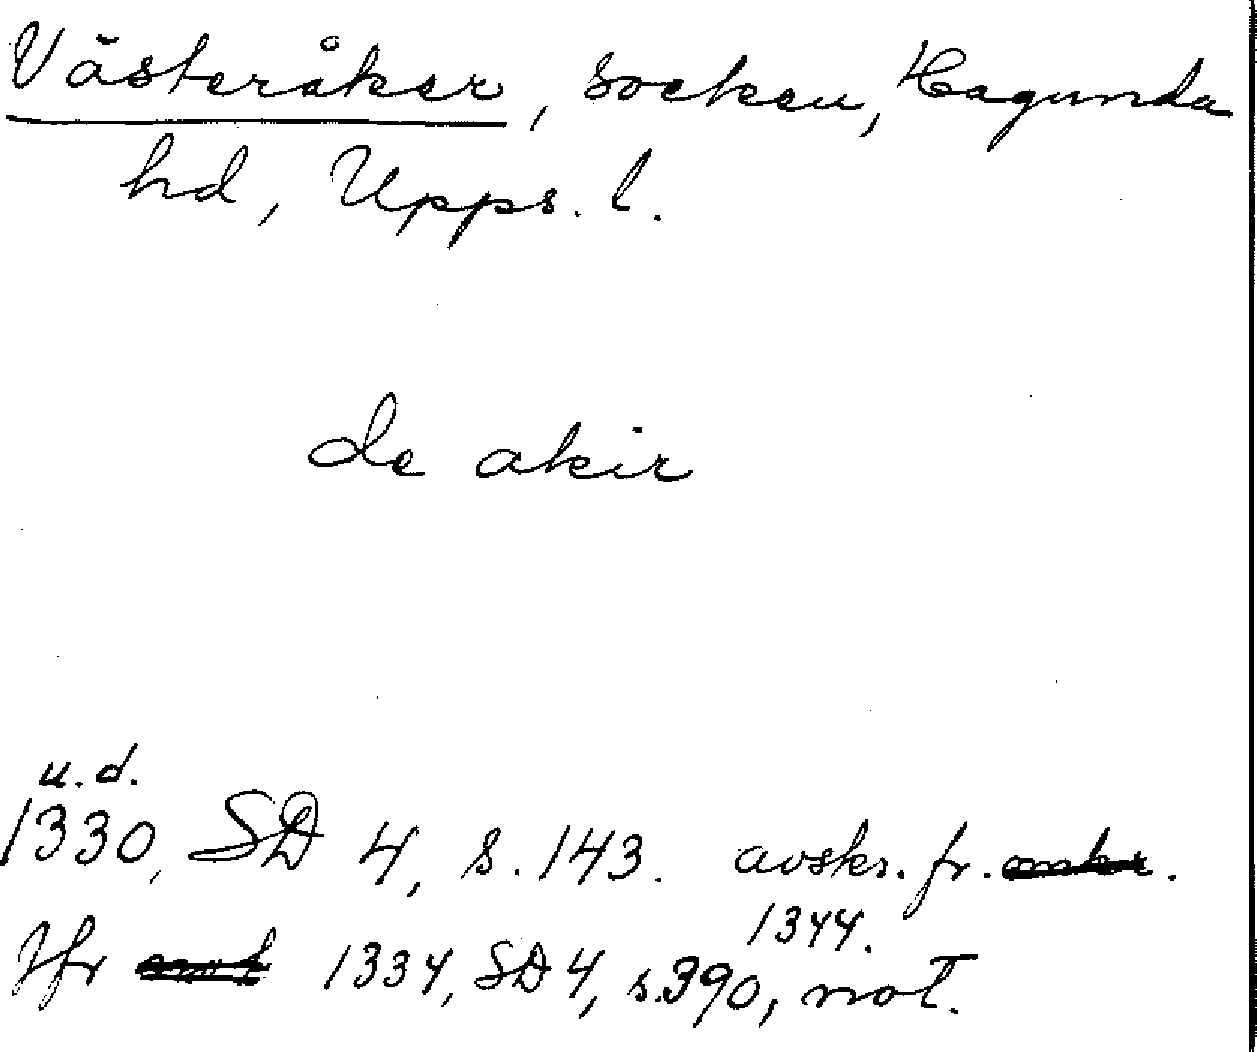 Västeråker, socken, Hagunda
hd, Upps. l.
de akir
u.d.
1330, SD 4, s. 143. avskr. fr.
1344.
Jfr 1334, SD 4, s. 390, not.